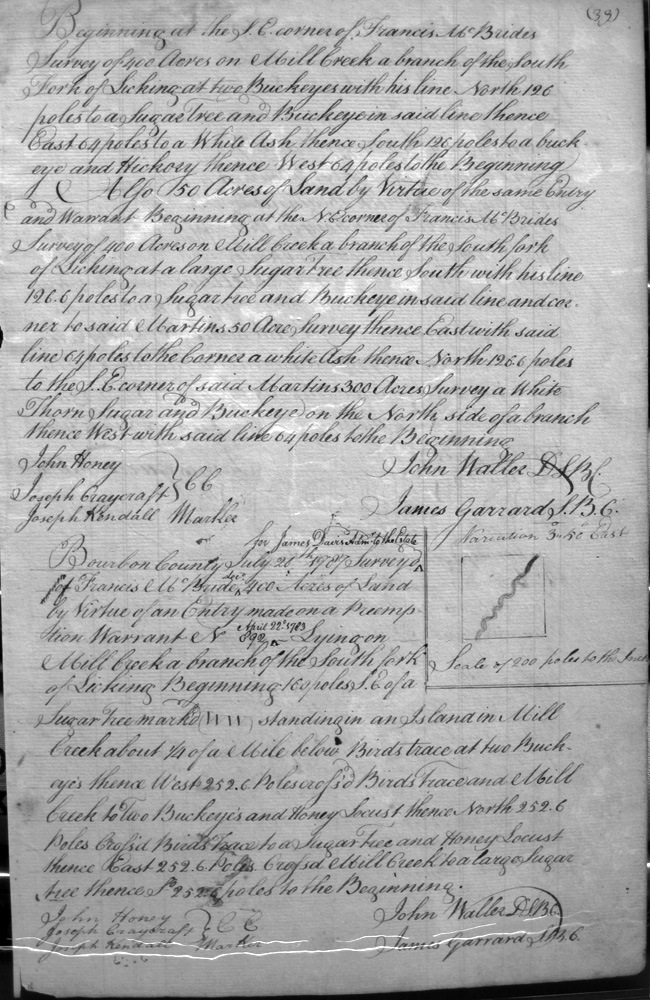 (39)
Beginning at the S. E. corner of Francis McBrides
Survey of 400 Acres on Mill Creek a branch of the South
Fork of Licking at two Buckeyes with his line North 126
poles to a Sugar Tree and Buckeye in said line thence
East 64 poles to a White Ash thence South 126 poles to a buck-
eye and Hickory thence West 64 poles to the Beginning
Also 50 Acres of Land by Virtue of the same Entry
and Warrant Beginning at the N E corner of Francis McBrides
Survey of 400 Acres on Mill Creek a branch of the South fork
of Licking at a large Sugar tree thence South with his line
126.6 poles to a Sugar tree and Buckeye in said line and cor-
ner to said Martins 50 Acre Survey thence East with said
line 64 poles to the Corner a white Ash thence North 126.6 poles
to the S. E. corner of said Martins 300 Acres Survey a White
Thorn Sugar and Buckeye on the North side of a branch
thence West with said line 64 poles to the Beginning
John Honey
Joseph Craycraft } CC
Joseph Kendall Marker
John Waller D S B C
James Garrard S. B. C.
for James Davis Admr. to the Estate
Bourbon County July 28th 1787 Survey'd
of Francis McBride Decd. 400 Acres of Land
by Virtue of an Entry made on a Preemp
tion Warrant N 892 April 22d. 1783 Lying on
Mill Creek a branch of the South fork
of Licking Beginning 160 poles S. E of a
Variation 3° 50' East
Scale of 200 poles to the Inch
Sugar Tree mark'd (WW) standing in an Island in Mill
Creek about 1/4 of a Mile below Birds trace at two Buck-
eyes thence West 252.6 Poles cross'd Birds Trace and Mill
Creek to Two Buckeyes and Honey Locust thence North 252.6
Poles Cross'd Birds Trace to a Sugar Tree and Honey Locust
thence East 252.6 Poles Cross'd Mill Creek to a large Sugar
tree thence So. 252.6 poles to the Beginning.
John Honey
Joseph Craycraft } C C
Joseph Kendall Marker
John Waller D S B C
James Garrard S. B. C.